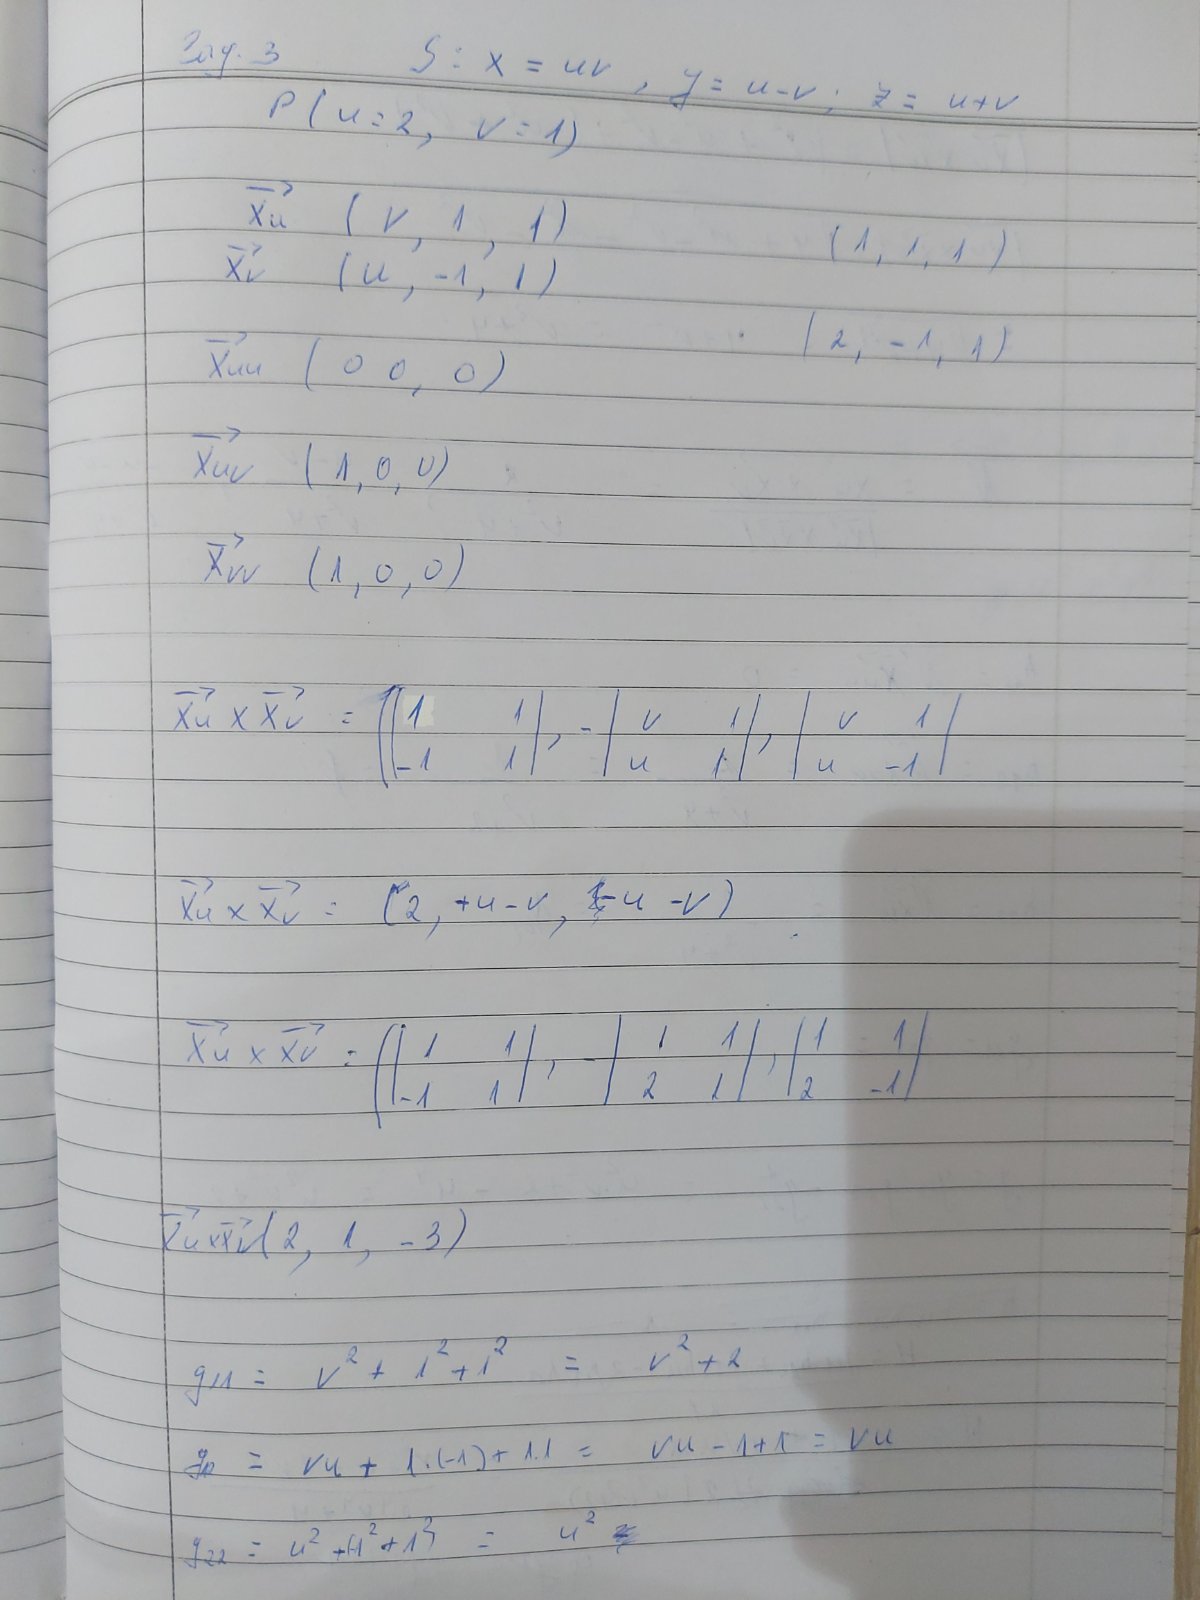 Зад. 3 S: x = uv, y = u-v; z = u+v
P(u=2, v=1)
x⃗u (v, 1, 1) (1, 1, 1)
x⃗v (u, -1, 1)
(2, -1, 1)
x⃗uu (0 0, 0)
x⃗uv (1, 0, 0)
x⃗vv (1, 0, 0)
x⃗u × x⃗v = (|1 1|, -|v 1|, |v 1|
|-1 1| |u 1| |u -1|
x⃗u × x⃗v = (2, +u-v, -u -v)
x⃗u × x⃗v = (|1 1|, -|1 1|, |1 1|
|-1 1| |2 1| |2 -1|
x⃗u×x⃗v(2, 1, -3)
g11 = v² + 1² + 1² = v² + 2
g12 = vu + 1.(-1) + 1.1 = vu - 1 + 1 = vu
g22 = u² + 1² + 1² = u²